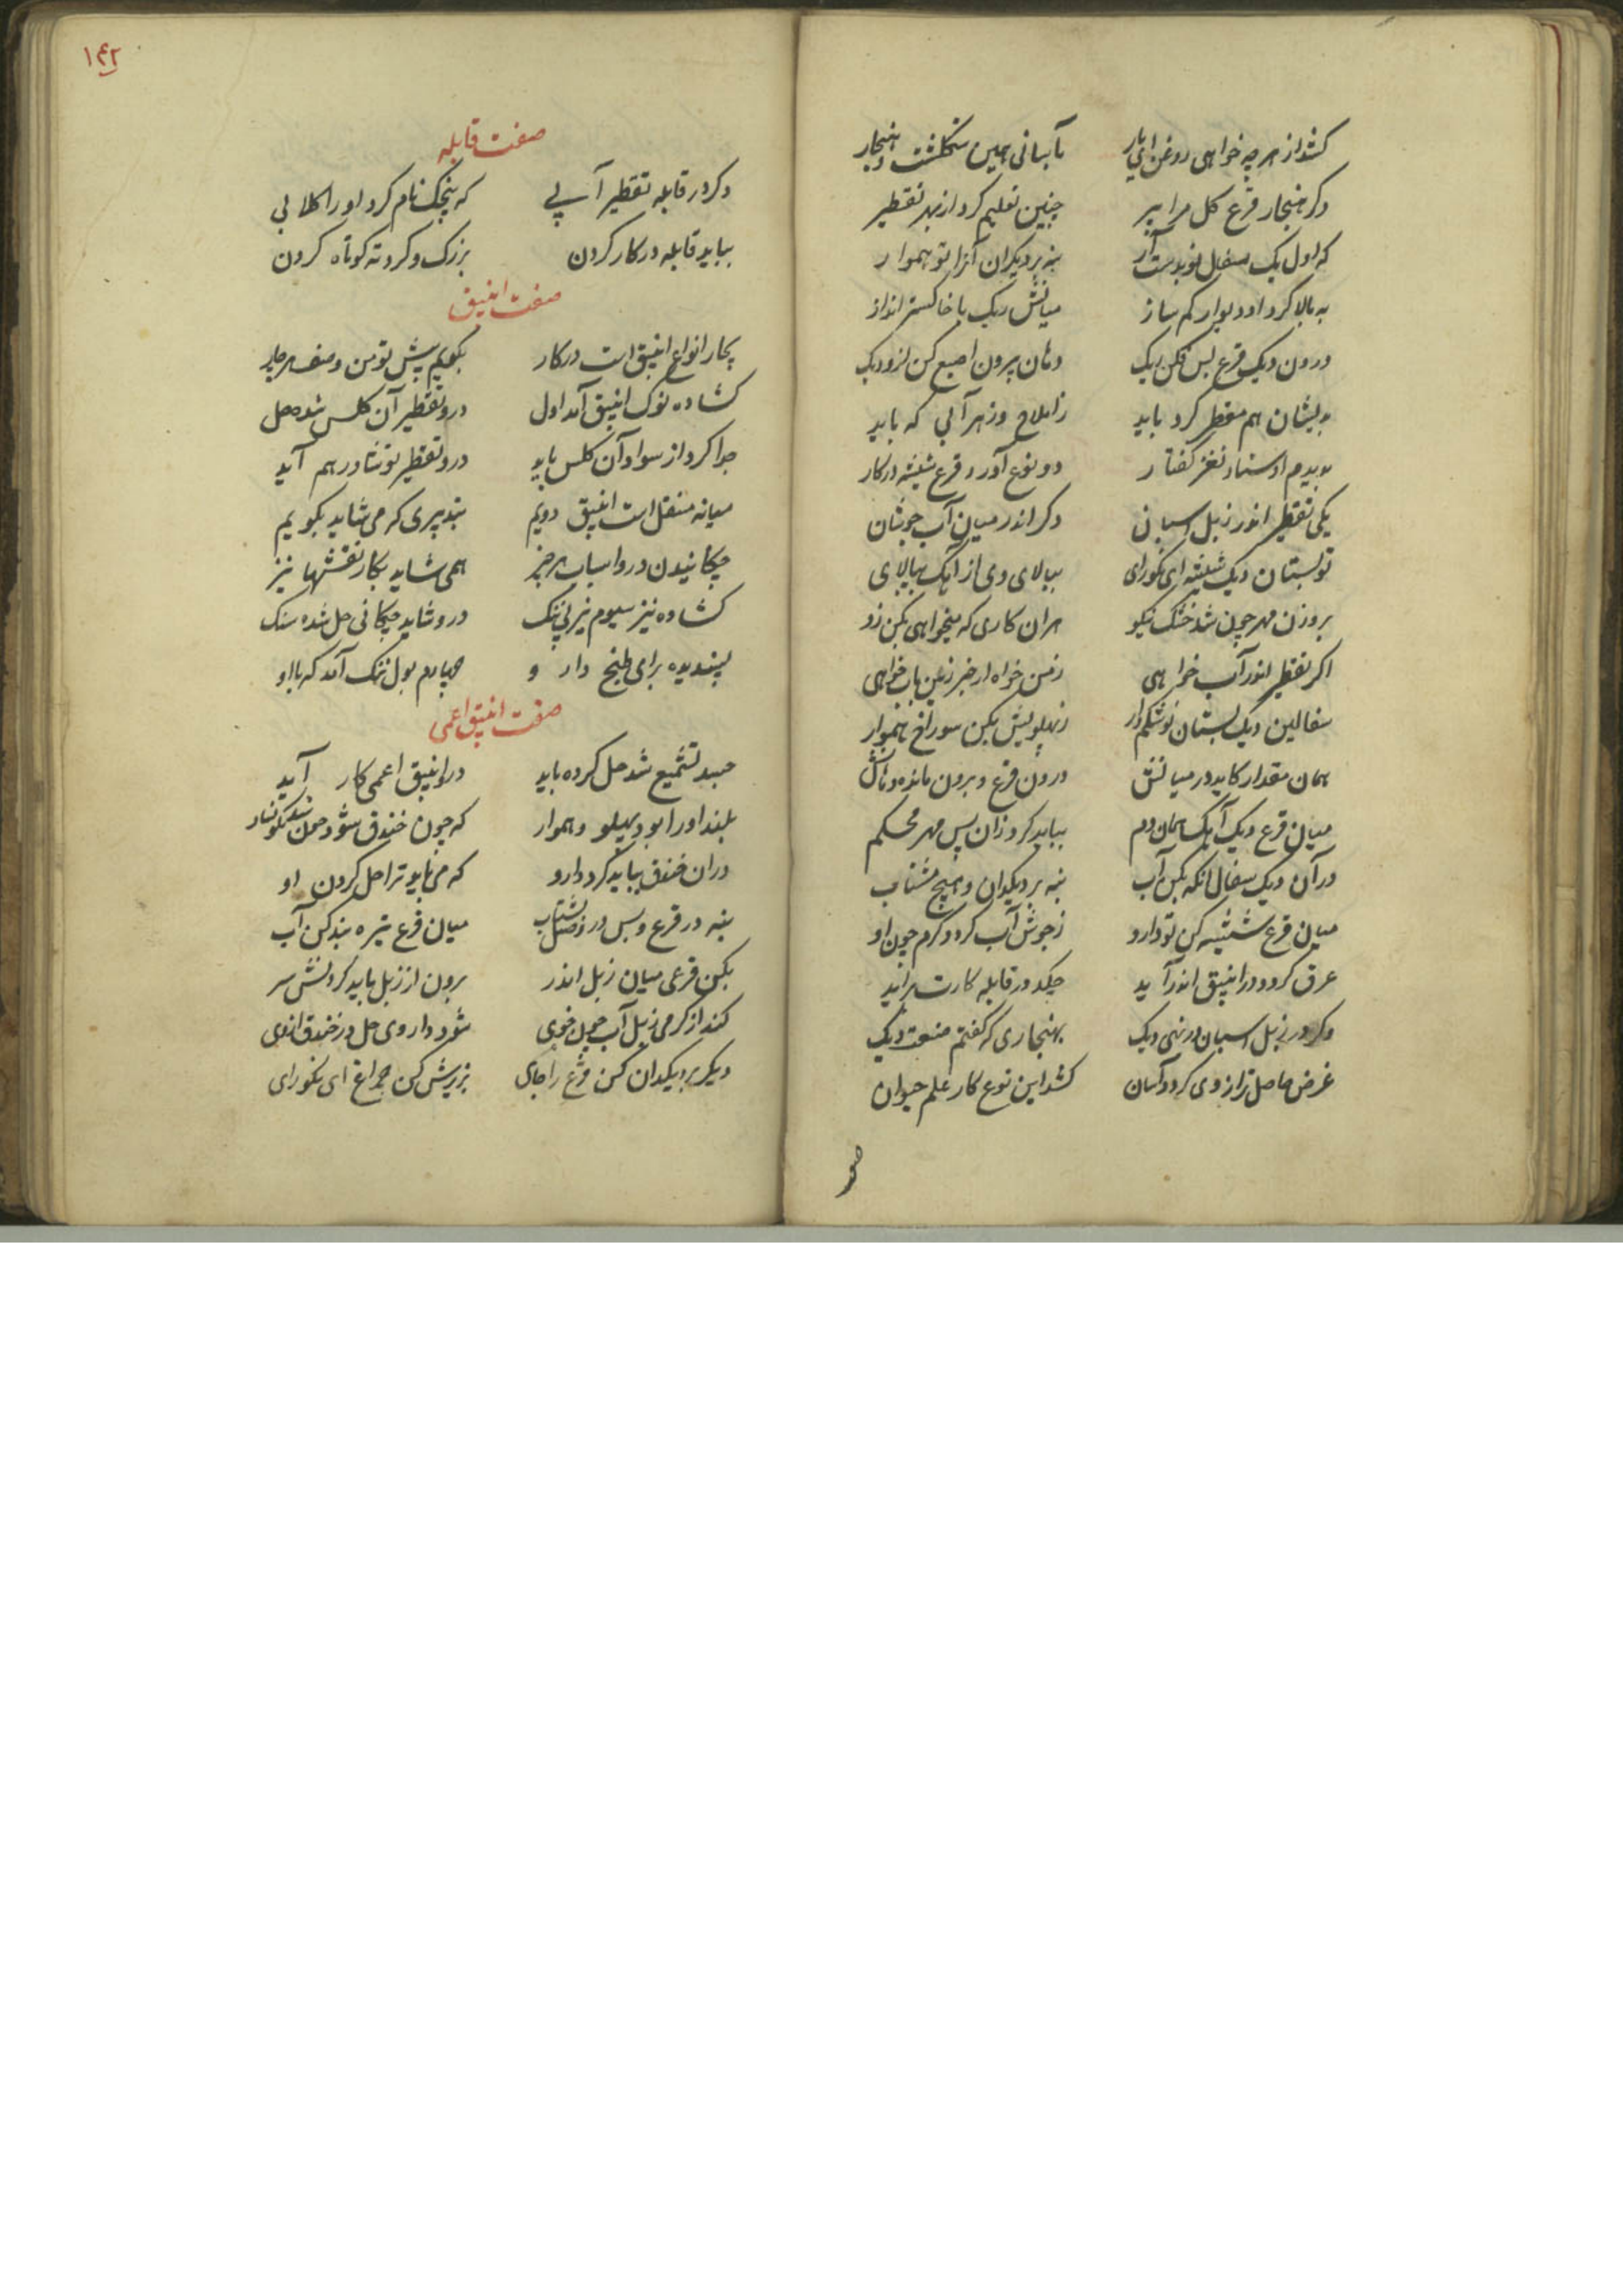 کشد از هر چه خواهی روغن ای یار بآسانی همین هنجار
دکر هنجار قرع کل مرا پیر چنین تعلیم کرد از بهر تقطیر
که اول یک سفال نو بدست آر بنه بر دیکدان آنرا تو هموار
به بالا کرد او دیوار کم ساز میانش ریک یا خاکستر انداز
درون دیک قرع پس فکن ریک دهان بیرون اصبع کن ازو دیک
بدیشان هم مقطر کرد باید ز املاح و زهر آبی که باید
بدیدم اوستاد نغز کفتار دو نوع آورد قرع شیشه در کار
یکی تقطیر اندر زبل اسبان دکر اندر میان آب جوشان
تو بستان دیک شیشه ای نکورای ببالای وی از آهک بپالای
بروزن مهر چون شد خشک نیکو هران کاری که میخواهی بکن زو
اکر تقطیر اندر آب خواهی ز من خواه ار خبر زین باب خواهی
سفالین دیک بستان نو شکم دار ز پهلویش بکن سوراخ هموار
همان مقدار کاید در میانش درون قرع و برون مانده دهانش
میان قرع و دیک آهک همان دم بباید کرد زان پس مهر محکم
در آن دیک سفال انکه بکن آب بنه بر دیکدان و هیچ مشتاب
میان قرع شیشه کن تو دارو ز جوش آب کردد کرم چون او
عرق کردد در انبیق اندر آید چکد در قابله کارت برآید
وکر در زبل اسبان در نهی دیک بهنجاری که کفتم صنعت دیک
غرض حاصل ترا زوی کردد آسان کشد این نوع کار علم حیوان
صفت
۱۴۲
صفت قابله
دکر در قابله تقطیر آبی که پنجک نام کرد او را کلابی
بباید قابله در کار کردن بزرک و کرد و ته کوتاه کردن
صفت انبیق
چار انواع انبیق است در کار بکویم پیش تو من وصف هر چار
کشاده نوک انبیق آمد اول درو تقطیر آن کلس شده حل
جدا کرد از سواد آن کلس باید درو تقطیر نوشادر هم آید
میانه منقل است انبیق دویم بتدبیری که می شاید بکویم
چکانیدن درو اسباب هر چیز همی شاید بکار نقشها نیز
کشاده نیز سیوم نیز بی تنک درو شاید چکانی حل شده سنک
پسندیده برای طبخ دارو چهارم بول تنک آمد که با او
صفت انبیق اعمی
جسد تشمیع شد حل کرده باید در انبیق اعمی کار آید
بلند او را بود پهلو و هموار که چون خندق شود
دران خندق بباید کرد دارو که می باید ترا حل کردن او
بنه در قرع و پس در بشتاب میان قرع تیره بند کن آب
بکن قرعی میان زبل اندر برون از زبل باید کردنش سر
کند از کرمی زبل آب چون خوی شود داروی حل در خندق اندی
دیکر بر دیکدان کن قرع را جای بزیرش کن چراغ ای نکورای